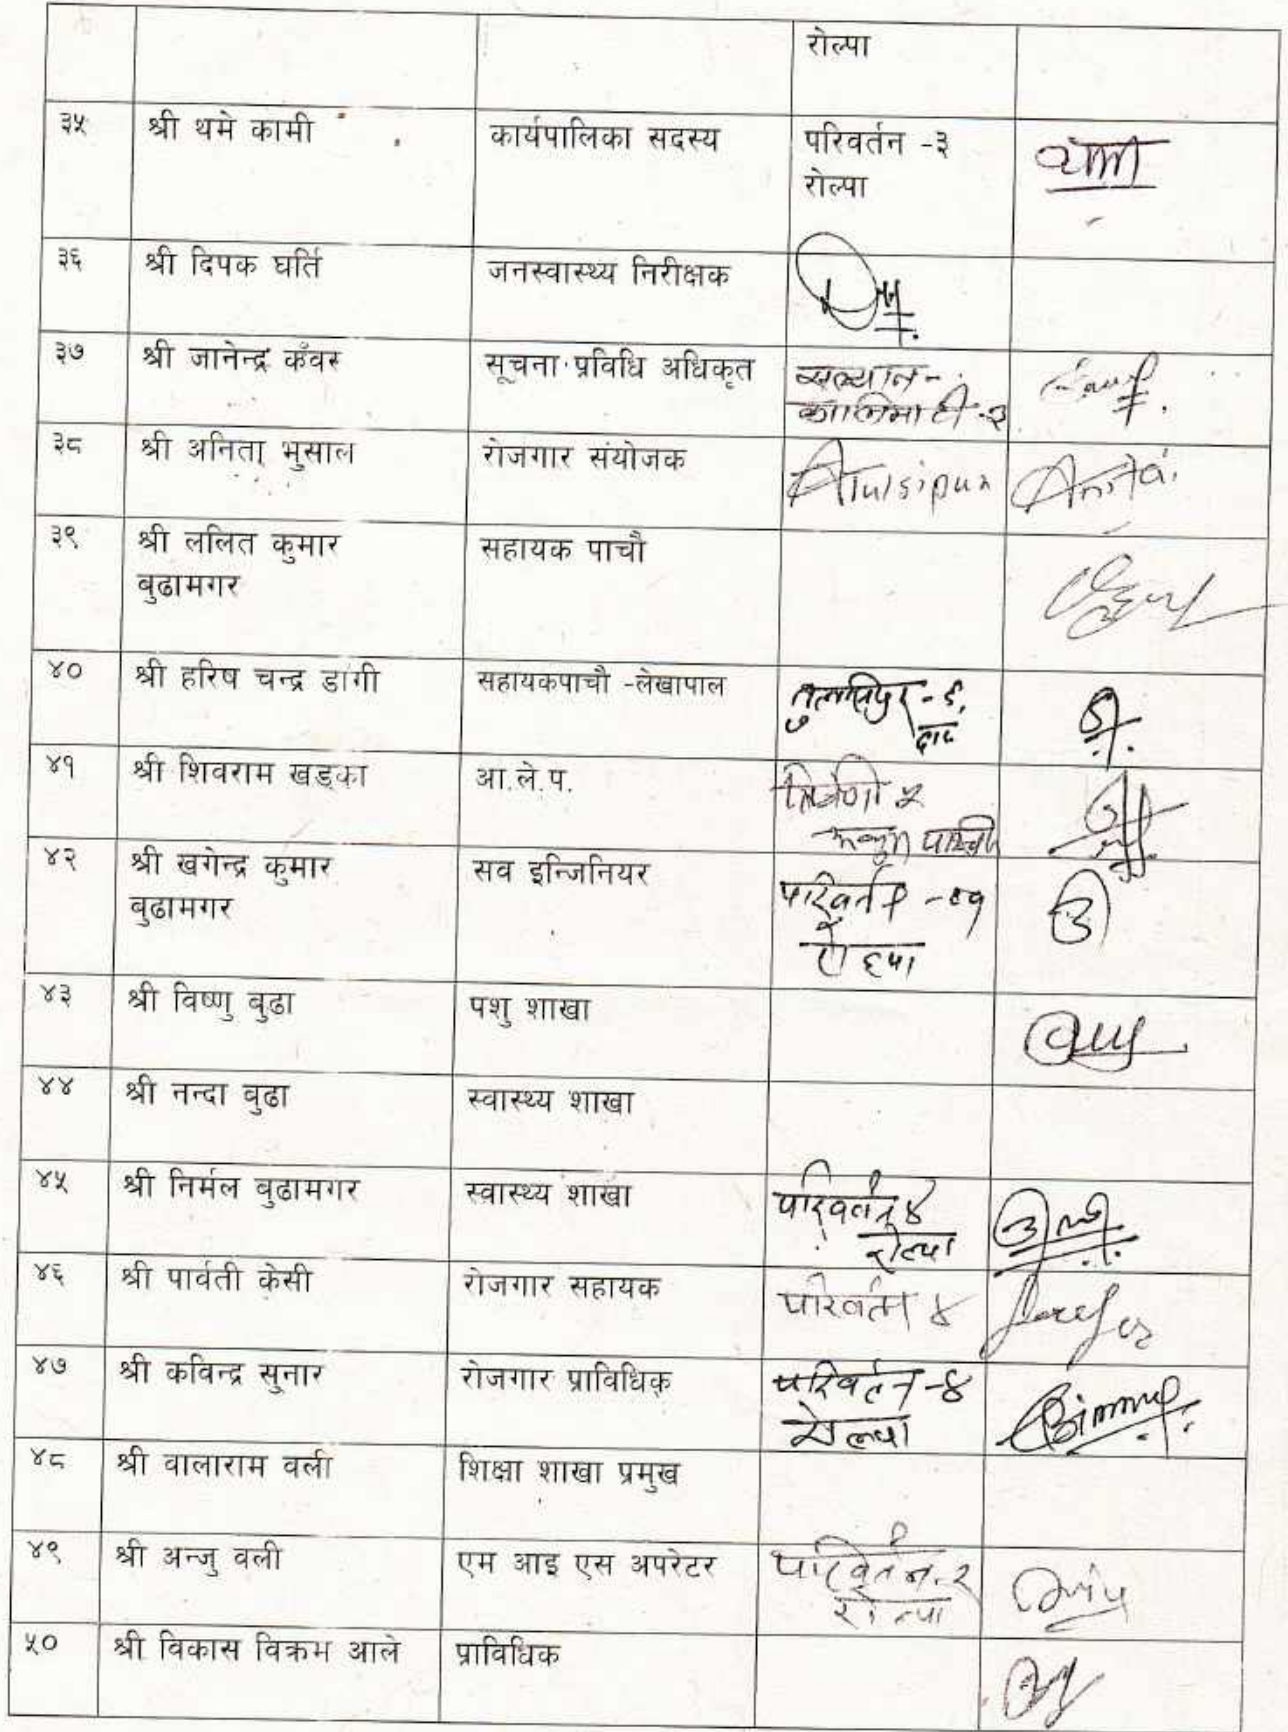 रोल्पा
३५ श्री थमे कामी कार्यपालिका सदस्य परिवर्तन -३
रोल्पा
३६ श्री दिपक घर्ति जनस्वास्थ्य निरीक्षक
३७ श्री जानेन्द्र कँवर सूचना प्रविधि अधिकृत सल्यान-
कालिमाटी-२
३८ श्री अनिता भुसाल रोजगार संयोजक Tulsipur Anita
३९ श्री ललित कुमार सहायक पाचौ
बुढामगर
४० श्री हरिष चन्द्र डांगी सहायकपाचौ -लेखापाल तुलसिपुर-६,
दाङ
४१ श्री शिवराम खड्का आ.ले.प. त्रिवेणी
४२ श्री खगेन्द्र कुमार सव इन्जिनियर परिवर्तन
बुढामगर रोल्पा
४३ श्री विष्णु बुढा पशु शाखा
४४ श्री नन्दा बुढा स्वास्थ्य शाखा
४५ श्री निर्मल बुढामगर स्वास्थ्य शाखा परिवर्तन ४
रोल्पा
४६ श्री पार्वती केसी रोजगार सहायक परिवर्तन ४
४७ श्री कविन्द्र सुनार रोजगार प्राविधिक परिवर्तन -४
रोल्पा
४८ श्री वालाराम वली शिक्षा शाखा प्रमुख
४९ श्री अन्जु वली एम आइ एस अपरेटर परिवर्तन-२
रोल्पा
५० श्री विकास विक्रम आले प्राविधिक